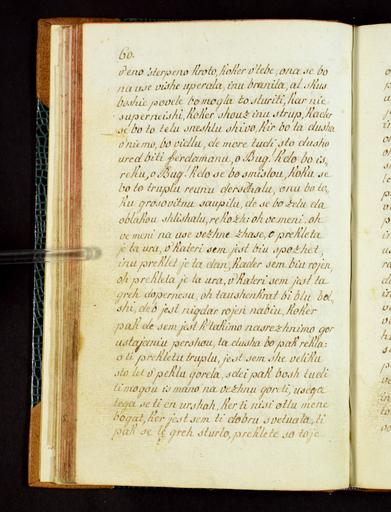 60.
deno sterpeno kroto, koker v'tebe, ona se bo
na use vishe uperala, inu branila, al skus
boshje povele bo mogla to sturiti, kar nie
superneishi, koker shouz inu strup, kader
se bo to telu sneshlu shivo, kir bo ta dusha
v'niemo, bo vidlu, de more tudi sto dusho
ured biti ferdamanu, o Bug. kdo bo is,
reku, o Bug. kdo se bo smislou, koku se
bo to truplu reunu dershalu, onu bo to,
ku grosovitnu saupilu, de se bo zelu da
oblakou shlishalu, rekozhi oh ve meni. oh
ve meni na use vezhne zhase, o prekleta
je ta ura, v'kateri sem jest biu spozhet,
inu preklet je ta dan, kader sem biu rojen,
oh prekleta je ta ura, v'kateri sem jest ta
greh dopernesu, oh taushenkrat bi blu bol,
shi, de b jest nigdar rojen nabiu, koker
pak de sem jest k'takimo nasrezhnimo gor
ustajeniu pershou, ta dusha bo pak rekla:
o ti prekletu truplu, jest sem she veliku
sto let v'peklu gorela, sdei pak bosh tudi
ti mogou is mano na vezhnu goreti, usega
tega se ti en urshah, ker ti nisi otlu mene
bogat, ker jest sem ti dobru svetuala, ti
pak se le greh sturlo, preklete so toje